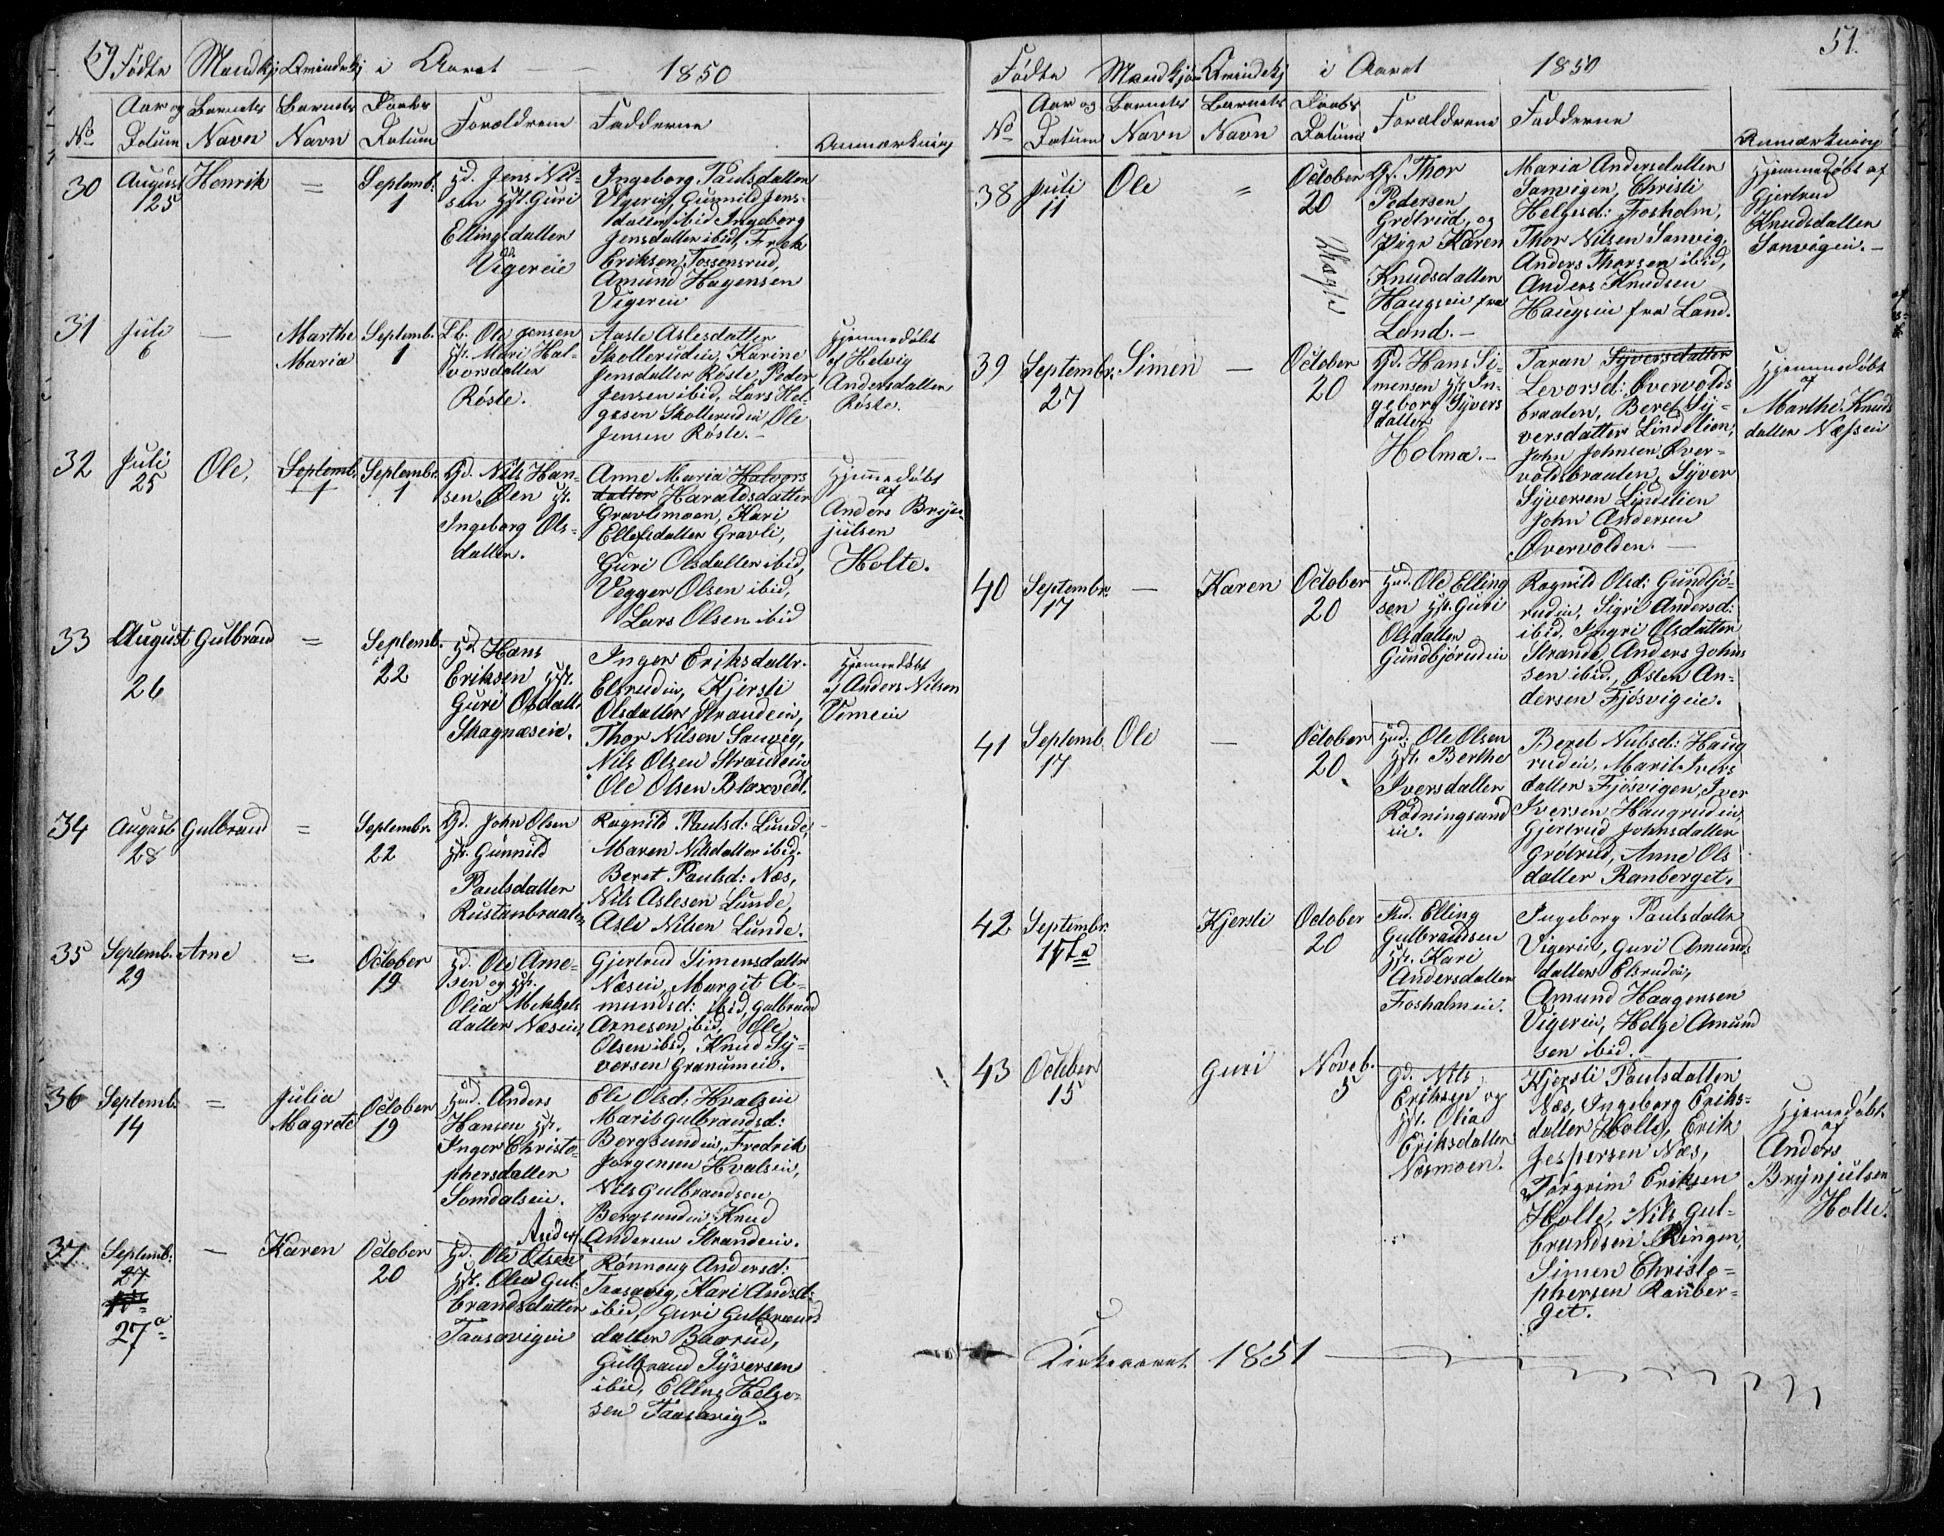 Fødte Mandkj Qvindekj i Aaret 1850
No
Aar og Datum
Barnets Navn
Barnets Navn
Daabs Datum
Forældrene
Fadderne
Anmærkning
30
August 25
Henrik
=
Septemb. 1
Jens Nil-
sen Guri
Ellingsdatter
Vigereie
Ingeborg Paulsdatter
Vigerei, Gunnild Jens-
datter ibid Ingeborg
Jensdatter ibid,
Eriksen Fossensrud,
Amund Hagensen
Vigerein
31
Juli 6
—
Marthe Maria
Septemb. 1
Ole Jensen
Mari Hal-
vorsdatter
Röste.
Aaste Aslesdatter
Skollerudein, Karine
Jensdatter Röste, Peder
Jensen ibid, Lars Hel-
gesen Skollerudein Ole
Jensen Röste.—
Hjemmedøbt
af Helvig
Andersdatter
Röste.
32
Juli 25
Ole,
Septemb. 1
Septembr. 1
Gd. Nils Han-
sen Øen
Ingeborg Ols-
datter.
Anne Maria Halvors
datter Haraldsdatter
Gravlimoen, Kari
Ellefsdatter Gravli,
Guri Olsdatter ibid,
Vegger Olsen ibid,
Lars Olsen ibid
Hjemmedøbt
af
Anders Brynjulsen
Holte.
33
August 26
Gulbrand
=
Septemb. 22
Hans
Eriksen
Guri Olsdatt.
Skagnæseie.
Inger Eriksdattr.
Elsrudin, Kjersti
Olsdatter Strandein,
Thor Nilsen Sanvig,
Nils Olsen Strandein
Ole Olsen Blaxvedt.
Hjemmedöbt
af Anders Nilsen
34
August 28
Gulbrand
=
Septembr. 22
Gd. John Olsen
Gunnild
Paulsdatter
Rustanbraaten
Ragnild Paulsd: Lunde,
Maren Nilsdatter ibid.
Beret Paulsd: Næs,
Nils Aslesen Lunde,
Asle Nilsen Lunde.
35
Septemb. 29
Arne
=
October 19
Ole Arne-
sen og
Olia Mikkels
datter Næseie,
Gjertrud Simensdatter
Næsein, Margit A-
mundsd: ibid, Gulbrand
Arnesen ibid, Ole
Olsen ibid, Knud Sy-
versen Granumeie.
36
Septemb. 14
=
Julia Magrete
October 19
Anders
Hansen
Inger Christo-
phersdatter
Somdalseie.
Eli Olsd, Hvalseie
Marit Gulbrandsd:
Bergsundein, Fredrik
Jørgensen Hvalsein,
Nils Gulbrandsen
Bergsundein, Knud
Andersen Strandeie.
37
Septemb: 27 27a
—
Karen
October 20
Anders
Ole Olsen
Olia Gul-
brandsdatter
Taasavigein
Rønnoug Andersd:
Taasavig, Kari Andsd:
ibid, Guri Gulbrands
datter Baarud,
Gulbrand Syversen
ibid, Elling Helge-
sen Taasavig.
Fødte Mandkjøn Qvindekj i Aaret 1850
51.
No
Aar og Datum
Barnets Navn
Barnets Navn
Daabs Datum
Forældrene
Fadderne
Anmærkning
38
Juli 11
Ole
"
October 20
Thor
Pedersen
Grötrud, og
Pige Karen
Knudsdatter
Haugseie fra
Land.—
Maria Andersdatter
Sanvigen, Christi
Helgesd: Fosholm,
Thor Nilsen Sanvig,
Anders Thorsen ibid,
Anders Knudsen
Haugseie fra Land.
Hjemmedøbt af
Gjertrud
Knudsdatter
Sanvigein.—
39
Septembr. 27
Simen
—
October 20
Gd. Hans Si-
mensen In-
geborg Syvers
datter
Holma.—
Taran Syversdatter
Levorsd: Øvervolds
braaten, Beret Sy-
versdatter Lindelien,
John Johnsen Øver-
voldsbraaten, Syver
Syversen Lindelien
John Andersen
Øvervolden.—
Hjemmedøbt
af
Marthe Knuds
datter Næssein
40
Septembr. 17
—
Karen
October 20
Ole Elling
sen Guri
Olsdatter
Gundbjørudein
Ragnild Olsd: Gundbjö-
rudein, Sigri Andersd:
ibid. Ingri Olsdatter
Strande, Anders Johns
sen ibid, Østen An-
dersen Fjösvigeie.
41
Septemb. 17
Ole
—
October 20
Ole Olsen
Berthe
Iversdatter
Rödningsand
ein.
Beret Nubsd: Haug
rudein, Marit Ivers
datter Fjösvigen, Iver
Iversen Haugrudein,
Gjertrud Johnsdatter
Grötrud, Anne Ols
datter Ranberget.
42
Septembr.
Kjersti
October 20
Elling
Gulbrandsen
Kari
Andersdatter
Fosholmein.
Ingeborg Paulsdattr
Vigerein, Guri Amunds
datter Elsrudein,
Amund Haagensen
Vigerein, Helge Amund
sen ibid.
43
October 15
Guri
Noveb. 5
Gd. Nils
Eriksen og
Olia
Eriksdatter
Næsmoen.
Kjersti Paulsdatter
Næs, Ingeborg Eriks-
datter Holte, Erik
Jespersen Næs,
Torgrim Eriksen
Holte, Nils Gul-
brandsen Ringen,
Simen Christo-
phersen Ranber-
get.
Hjemmedøbt
af
Anders
Brynjulsen
Holte.
Kirkeaaret 1851